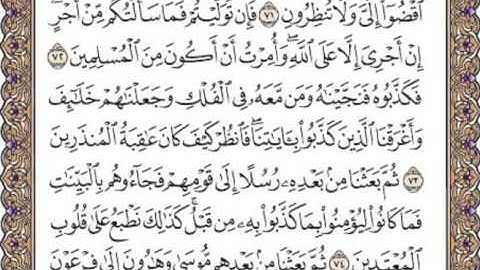 ٱقۡضُوٓاْ إِلَيَّ وَلَا تُنظِرُونِ ٧١ فَإِن تَوَلَّيۡتُمۡ فَمَا سَأَلۡتُكُم مِّنۡ أَجۡرٍۖ
إِنۡ أَجۡرِيَ إِلَّا عَلَى ٱللَّهِۖ وَأُمِرۡتُ أَنۡ أَكُونَ مِنَ ٱلۡمُسۡلِمِينَ ٧٢
فَكَذَّبُوهُ فَنَجَّيۡنَٰهُ وَمَن مَّعَهُۥ فِي ٱلۡفُلۡكِ وَجَعَلۡنَٰهُمۡ خَلَٰٓئِفَ
وَأَغۡرَقۡنَا ٱلَّذِينَ كَذَّبُواْ بِـَٔايَٰتِنَاۖ فَٱنظُرۡ كَيۡفَ كَانَ عَٰقِبَةُ ٱلۡمُنذَرِينَ
٧٣ ثُمَّ بَعَثۡنَا مِنۢ بَعۡدِهِۦ رُسُلًا إِلَىٰ قَوۡمِهِمۡ فَجَآءُوهُم بِٱلۡبَيِّنَٰتِ
فَمَا كَانُواْ لِيُؤۡمِنُواْ بِمَا كَذَّبُواْ بِهِۦ مِن قَبۡلُۚ كَذَٰلِكَ نَطۡبَعُ عَلَىٰ قُلُوبِ
ٱلۡمُعۡتَدِينَ ٧٤ ثُمَّ بَعَثۡنَا مِنۢ بَعۡدِهِم مُّوسَىٰ وَهَٰرُونَ إِلَىٰ فِرۡعَوۡنَ